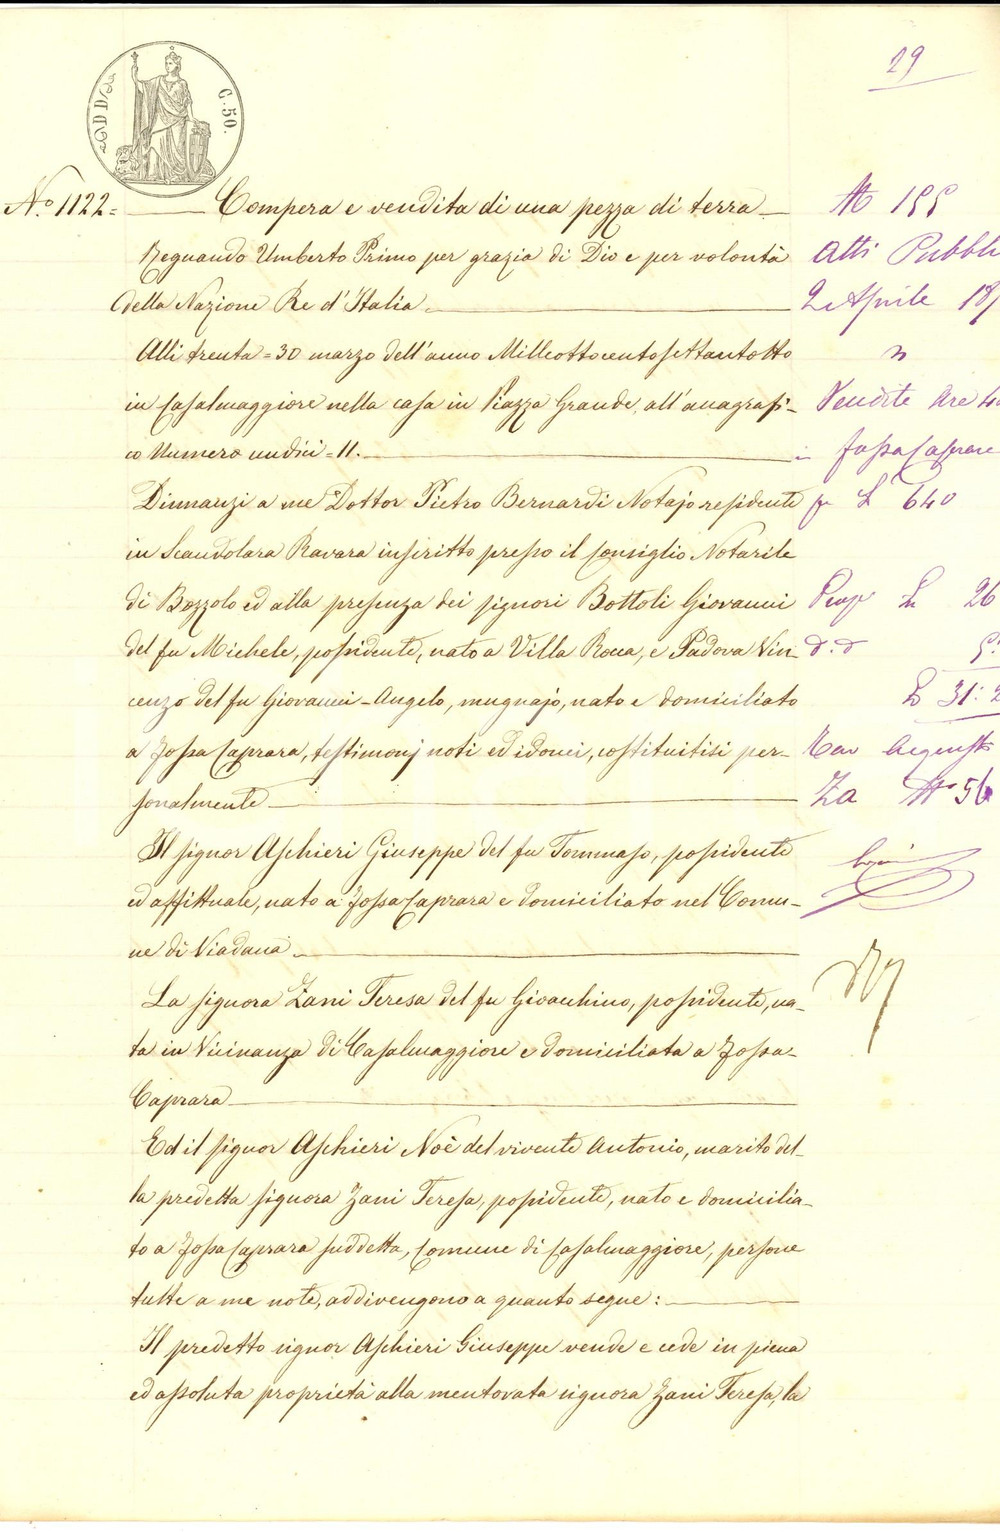 29
C. 50.
N.º 1122=
Compera e vendita di una pezza di terra
Regnando Umberto Primo per grazia di Dio e per volontà
della Nazione Re d'Italia
Alli trenta=30 marzo dell'anno Milleottocentosettantotto
in Casalmaggiore nella casa in Piazza Grande, all'anagrafi-
co Numero undici=11.
Dinnanzi a me Dottor Pietro Bernardi Notajo residente
in Scandolara Ravara inscritto presso il Consiglio Notarile
di Bozzolo ed alla presenza dei signori Bottoli Giovanni
del fu Michele, possidente, nato a Villa Rocca, e Padova Vin-
cenzo del fu Giovanni-Angelo, mugnajo, nato e domiciliato
a Fossa Caprara, testimonj noti ed idonei, costituitisi per-
sonalmente
Il signor Aschieri Giuseppe del fu Tommaso, possidente
ed affittuale, nato a Fossa Caprara e domiciliato nel Comu-
ne di Viadana
La signora Zani Teresa del fu Gioachino, possidente, na-
ta in Vicinanza di Casalmaggiore e domiciliata a Fossa-
Caprara
Ed il signor Aschieri Noè del vivente Antonio, marito del-
la predetta signora Zani Teresa, possidente, nato e domicilia-
to a Fossa Caprara suddetta, Comune di Casalmaggiore, persone
tutte a me note, addivengono a quanto segue:
Il predetto signor Aschieri Giuseppe vende e cede in piena
ed assoluta proprietà alla mentovata signora Zani Teresa, la
N 155
Atti Pubbli
2 Aprile 187
Vendite Are 40
in Fossa Caprara
per L 640
Prop L 26
d.d 5:
L 31:2
56